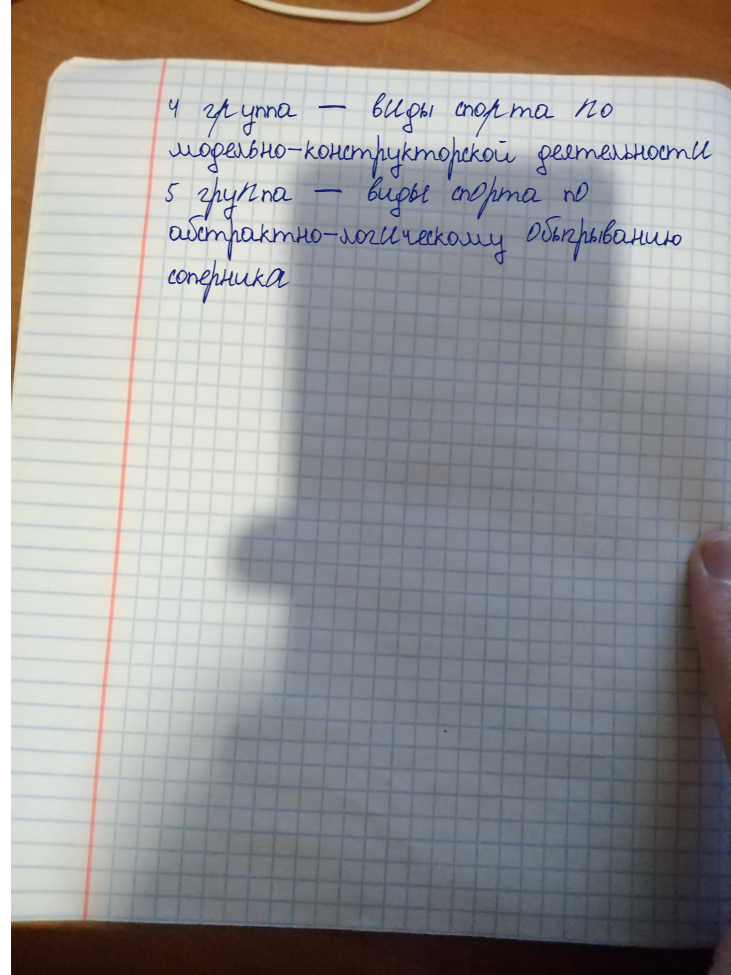 4 группа — виды спорта по
модельно-конструкторской деятельности
5 группа — виды спорта по
абстрактно-логическому обыгрыванию
соперника